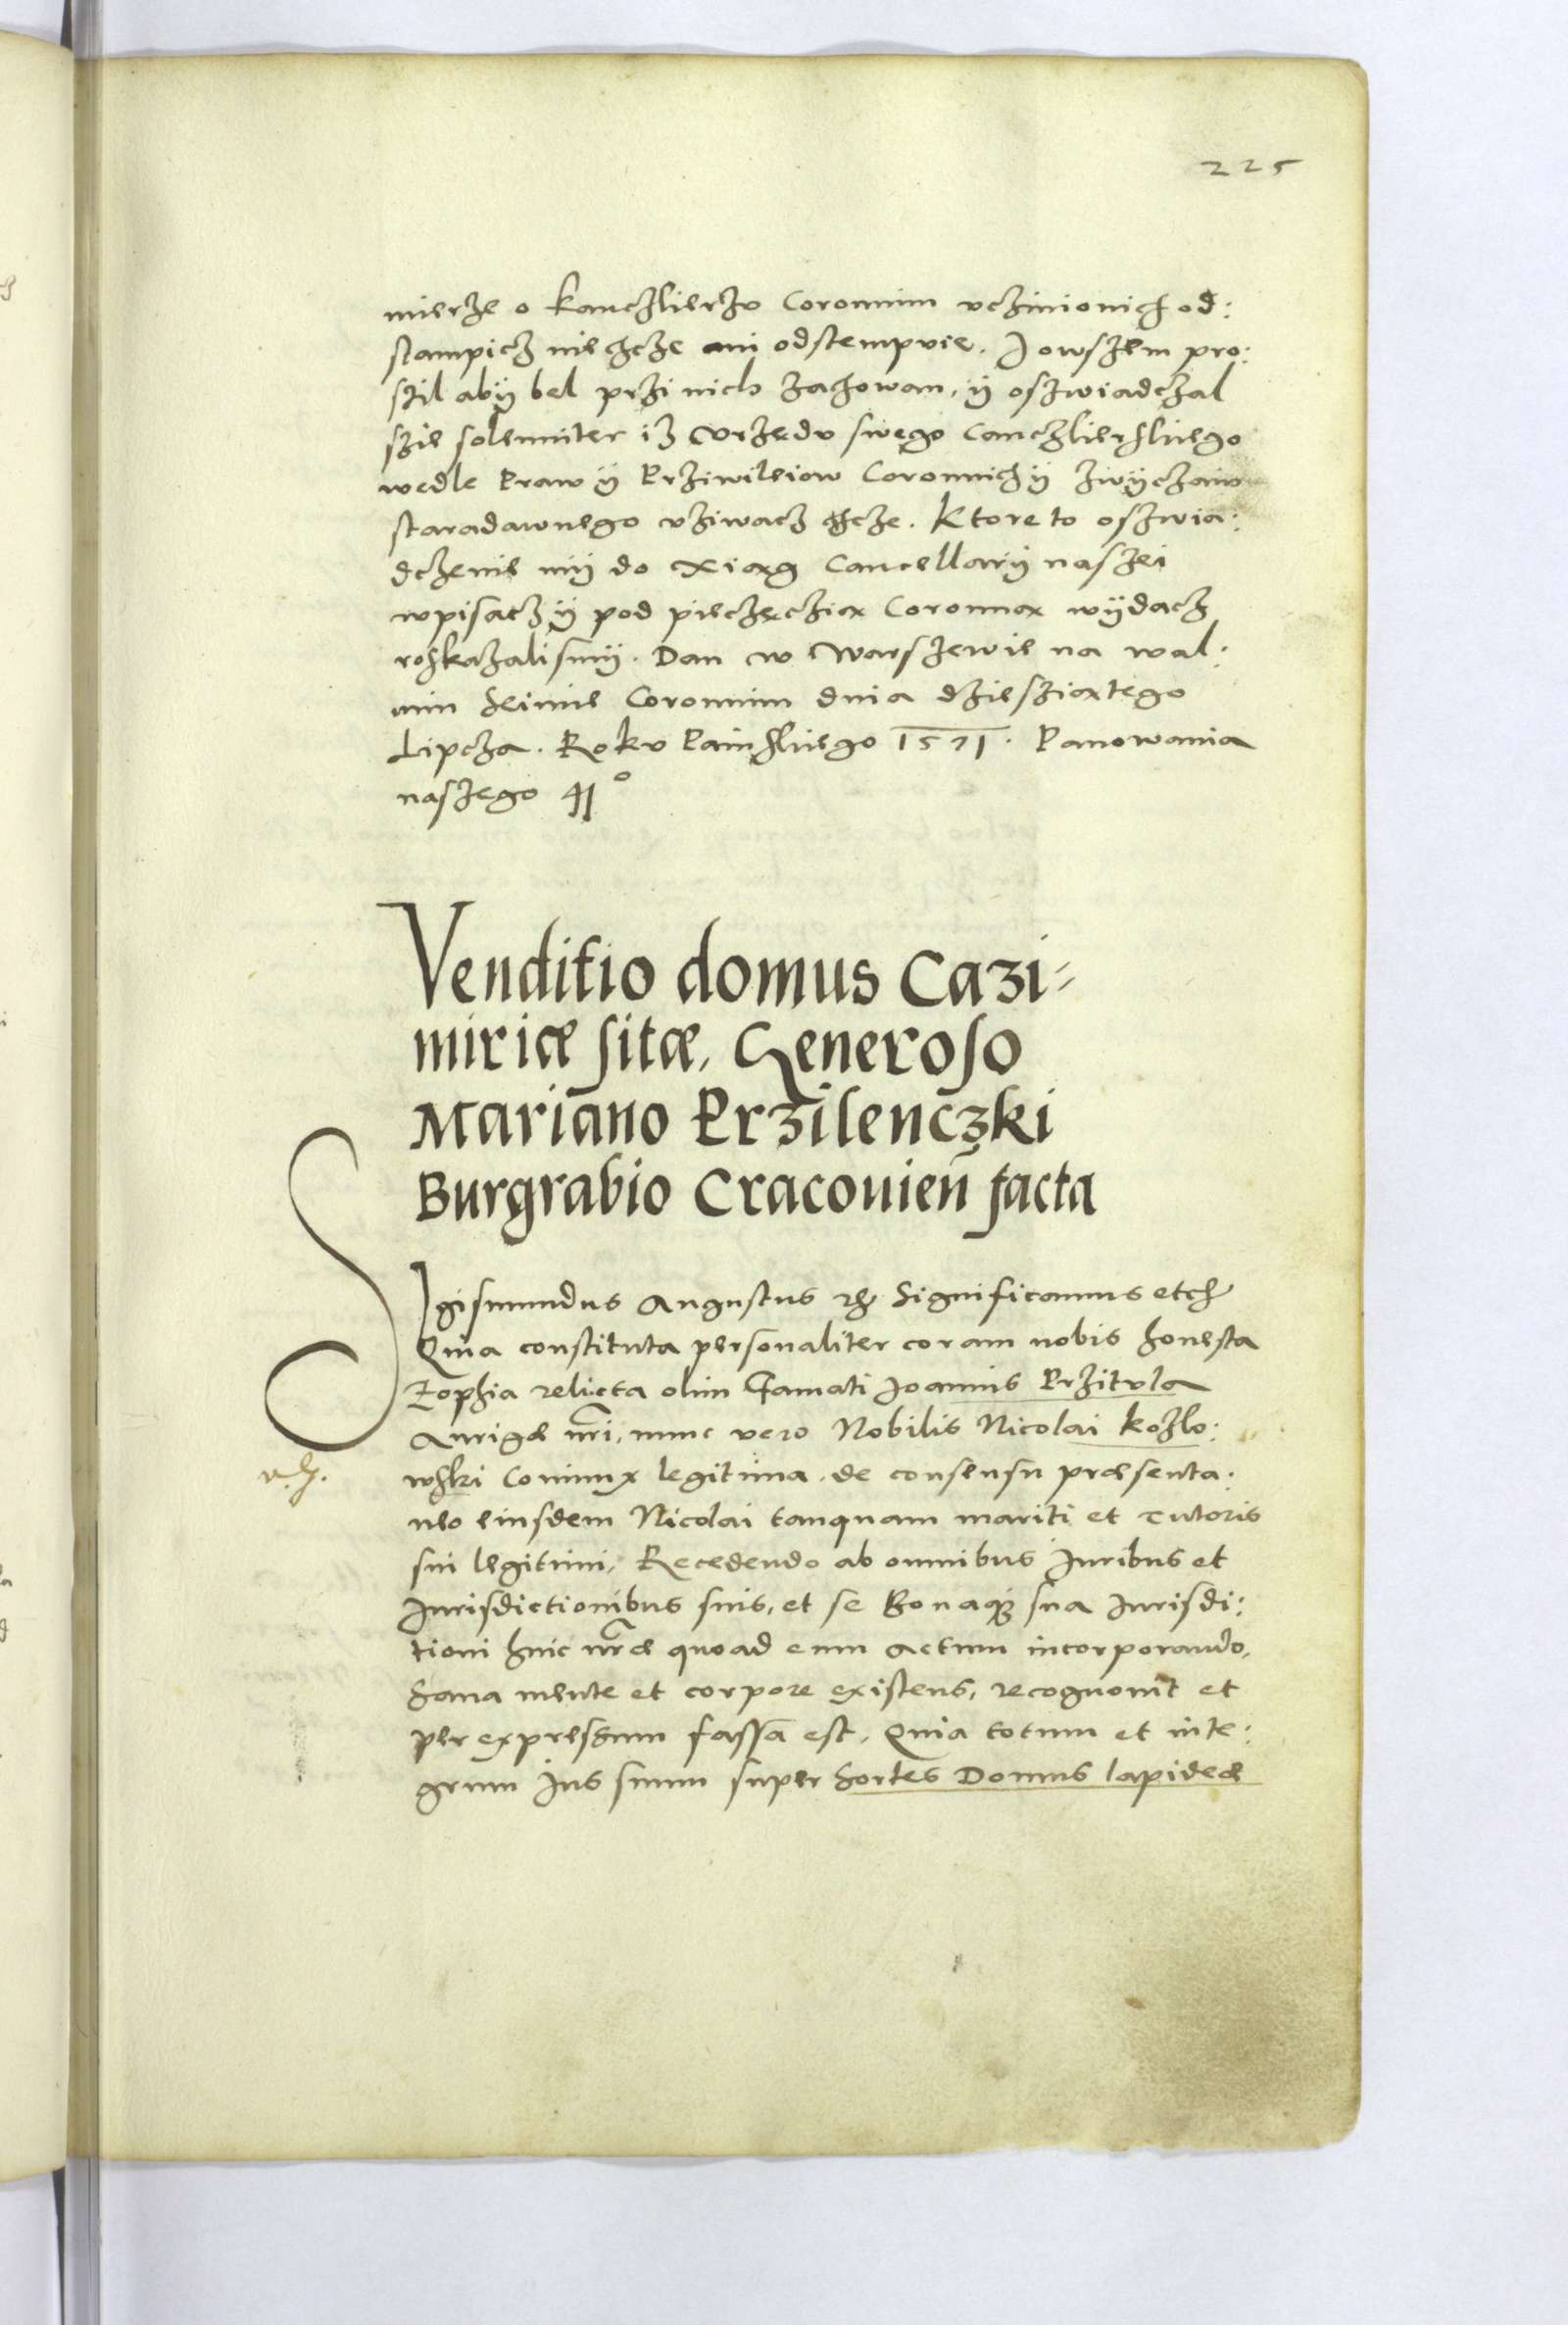 225
mierze o kanczlierzu Coronnim vczinionich od:
stampicz nie chcze ani odstempuie. J owszem pro:
szil abÿ bel przi nich zachowan, ÿ oszwiadczal
szie solenniter iz Vrzędu swego Canczlierskiego
wedle Praw ÿ Prziwileiow Coronnich ÿ zwÿczaiu
staradawnego vziwacz chcze. Ktore to oszwia:
dczenie mÿ do Xiąg Cancellarÿ naszei
wpisacz ÿ pod pieczęczią Coronną wÿdacz
roskazalismÿ. Dan w Warszewie na wal:
nim Seimie Coronnim dnia dziesziątego
Lipcza. Roku Painskiego 1571. Panowania
naszego 41°
Venditio domus Cazi-
miriæ sitæ, Generoso
Mariano Przilenczki
Burgrabio Cracouien̄ facta
Sigismundus Augustus etc Significamus etc
Quia constituta personaliter coram nobis honesta
Zophia relicta olim Famati Joannis Przitula
Aurigæ nr̃i, nunc vero Nobilis Nicolai Kozlo:
wski Coniunx legitima, de consensu præsenta:
neo eiusdem Nicolai tanquam mariti et Tutoris
sui legitimi, Recedendo ab omnibus Juribus et
Jurisdictionibus suis, et se Bonaq; sua Jurisdi:
tioni huic nr̃æ quoad eum actum incorporando,
Sana mente et corpore existens, recognouit et
per expressum fassa est, Quia totum et inte:
grum Jus suum super Sortes Domus lapideæ